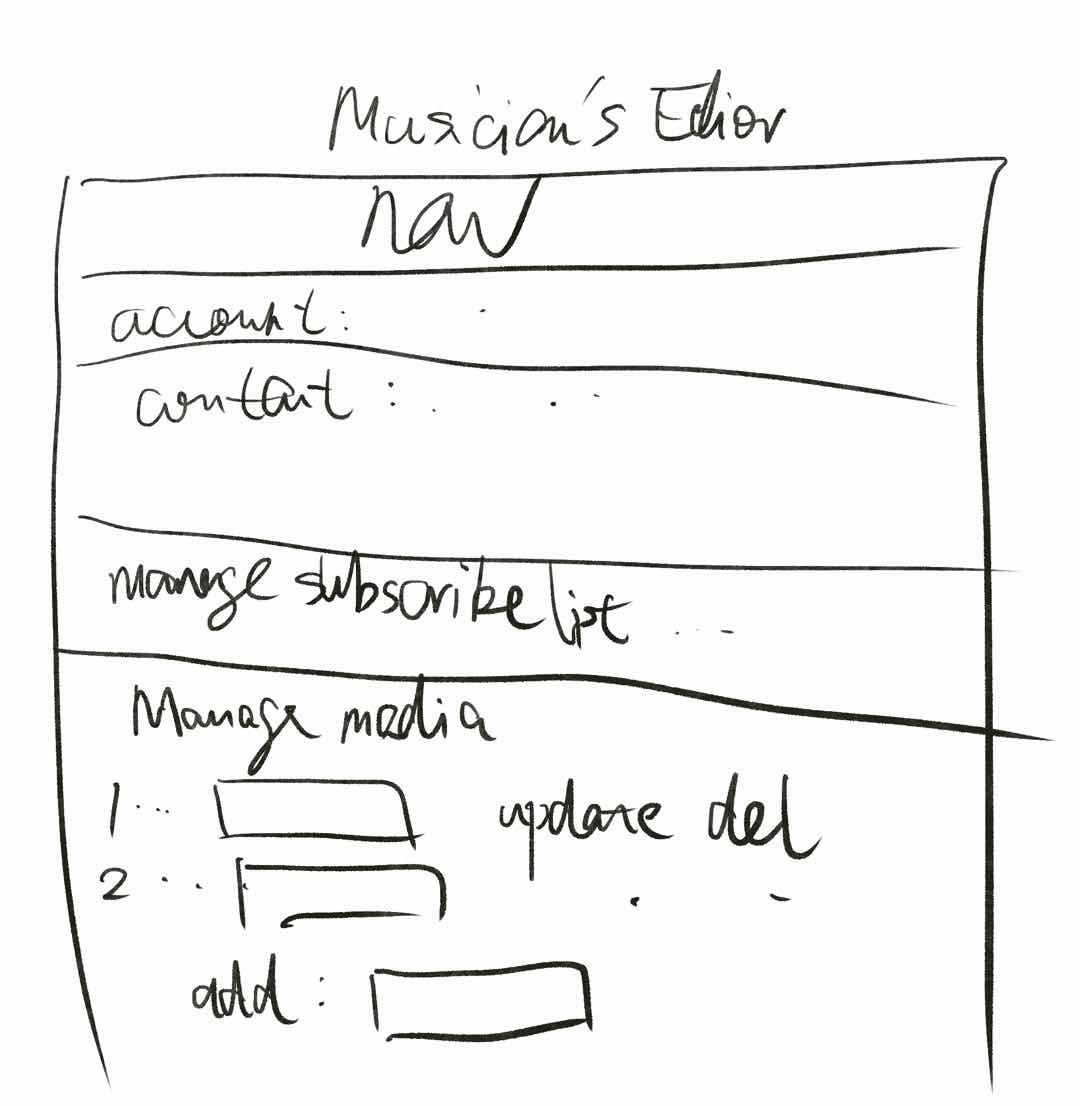 Musician's Edior
nav
account:
contant:
manage subscribe list ...
Manage media
1... update del
2...
add: